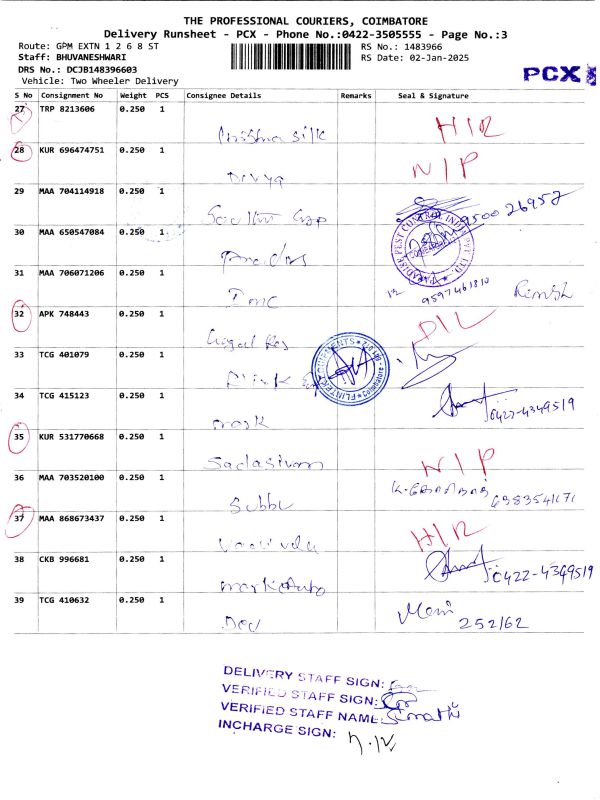 THE PROFESSIONAL COURIERS, COIMBATORE
Delivery Runsheet - PCX - Phone No.:0422-3505555 - Page No.:3
Route: GPM EXTN 1 2 6 8 ST
RS No.: 1483966
Staff: BHUVANESHWARI
RS Date: 02-Jan-2025
DRS No.: DCJB148396603
Vehicle: Two Wheeler Delivery
PCX
S No Consignment No Weight PCS Consignee Details Remarks Seal & Signature
27 TRP 8213606 0.250 1 Krishna silk
28 KUR 696474751 0.250 1 Divya N/P
29 MAA 704114918 0.250 1
30 MAA 650547084 0.250 1
31 MAA 706071206 0.250 1 9597461810
32 APK 748443 0.250 1 D/L
33 TCG 401079 0.250 1
34 TCG 415123 0.250 1 mark 0422-4349519
35 KUR 531770668 0.250 1 Sadasivam N/P
36 MAA 703520100 0.250 1 Subbu 6383541171
37 MAA 868673437 0.250 1
38 CKB 996681 0.250 1 mark Auto 0422-4349519
39 TCG 410632 0.250 1 Dev Mani 252/62
DELIVERY STAFF SIGN:
VERIFIED STAFF SIGN:
VERIFIED STAFF NAME:
INCHARGE SIGN: